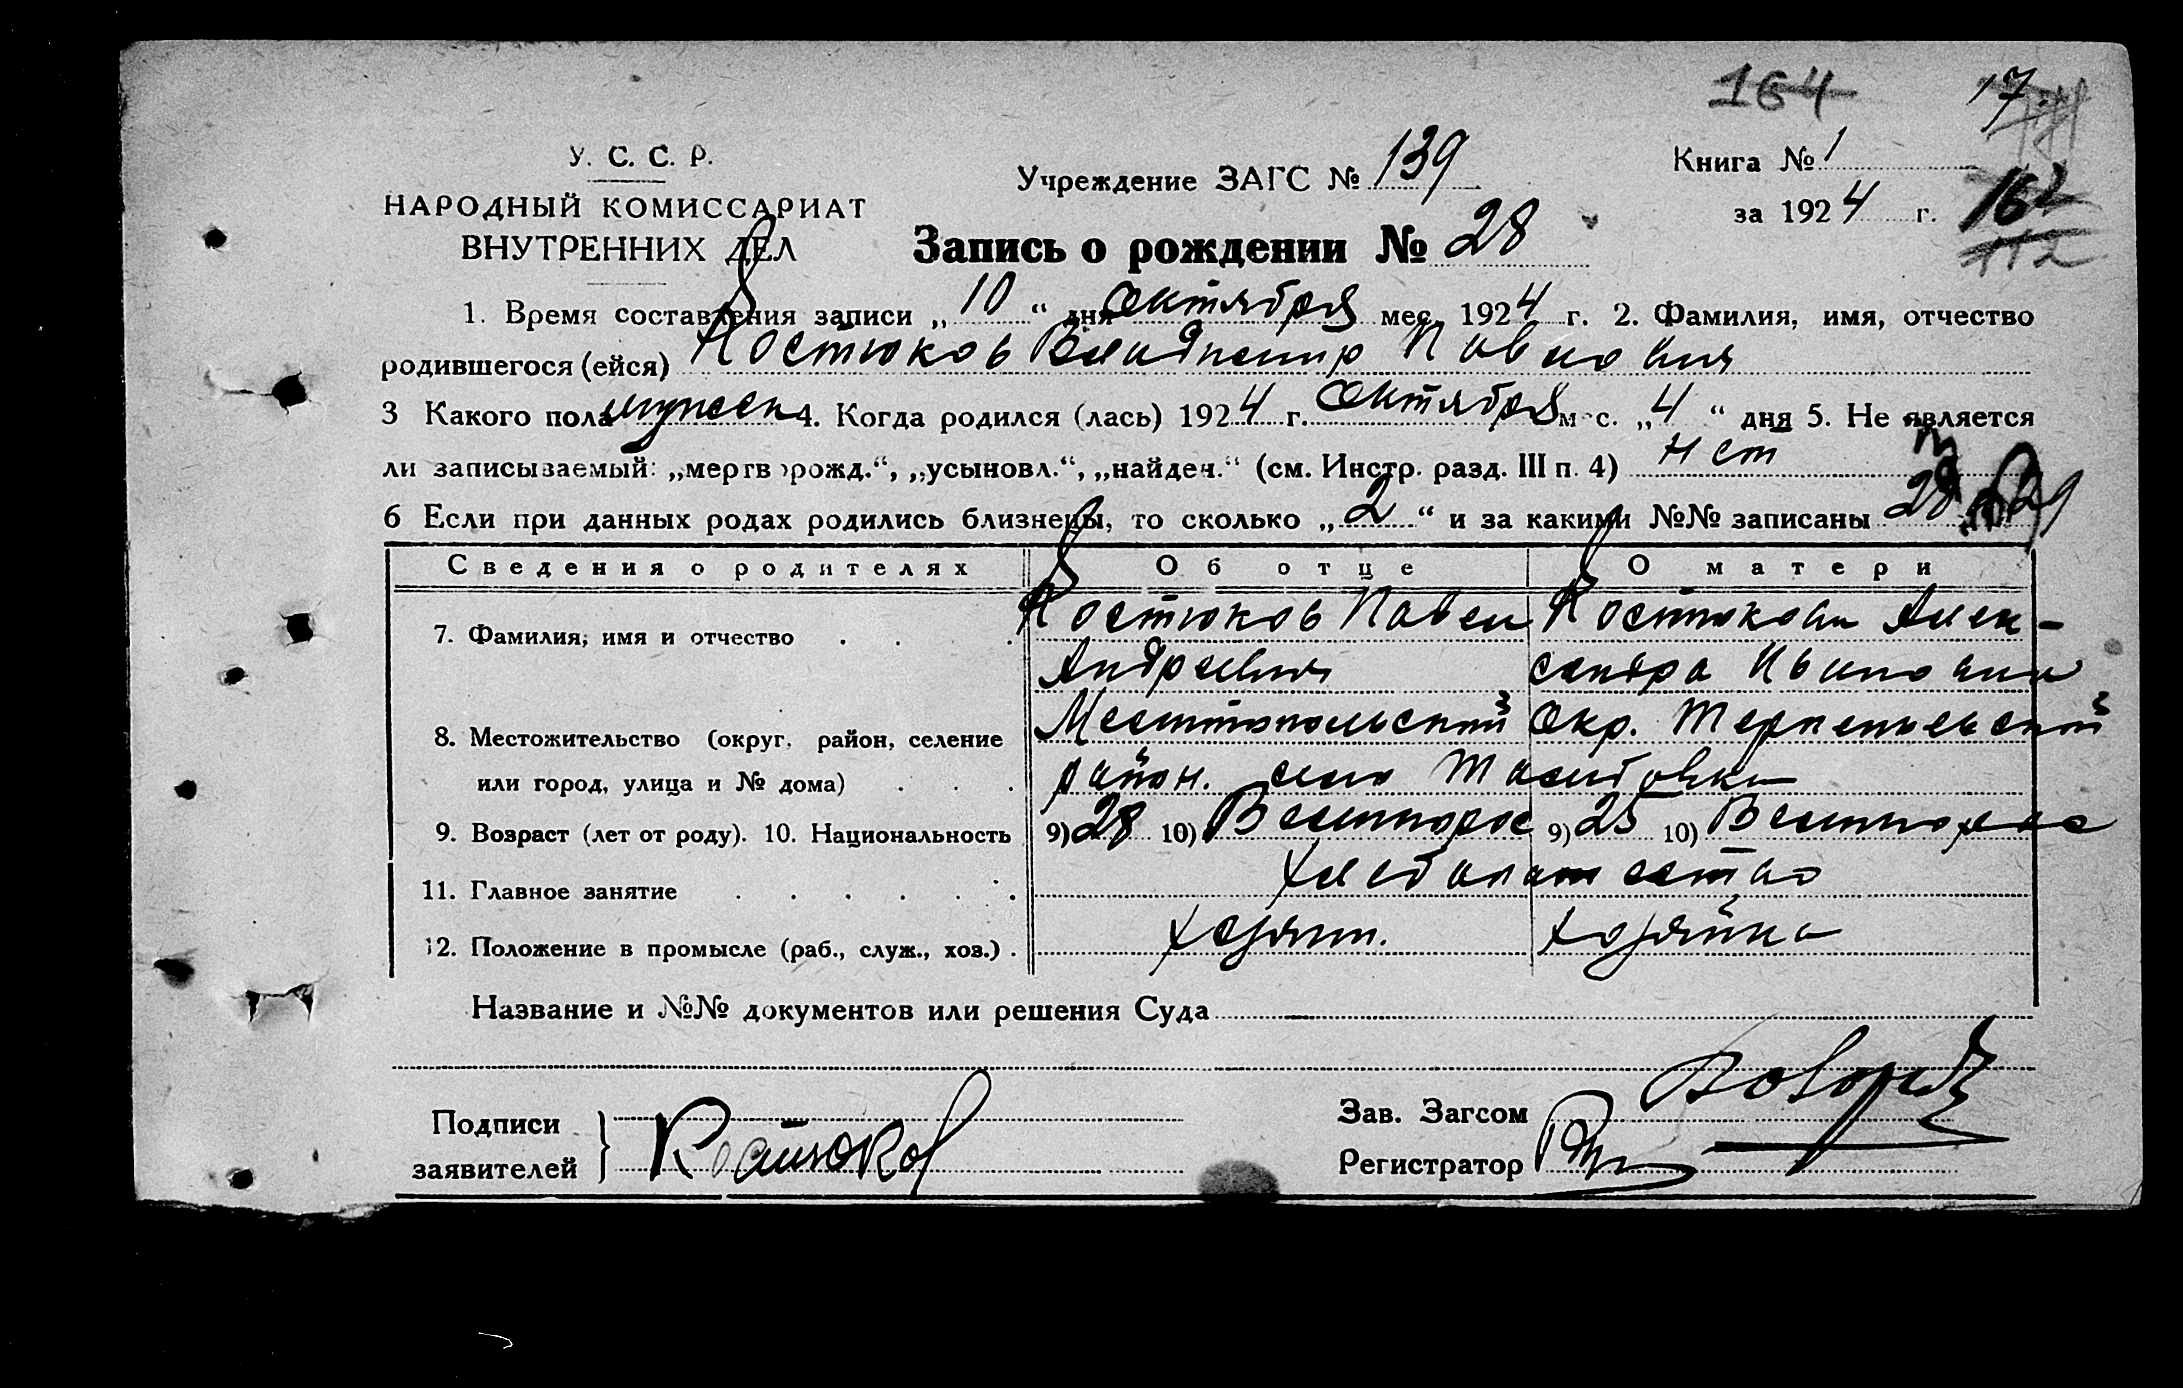 164 17
У. С. С. Р.
Учреждение ЗАГС № 139
Книга № 1
НАРОДНЫЙ КОМИССАРИАТ
за 1924 г. 162
ВНУТРЕННИХ ДЕЛ
Запись о рождении № 28
112
1. Время составления записи „10“ дня Октября мес. 1924 г. 2. Фамилия, имя, отчество
родившегося (ейся) Костюков Владимир Павлович
3 Какого пола мужск 4. Когда родился (лась) 1924 г. Октября мес. „4“ дня 5. Не является
ли записываемый: „мертворожд.“, „усыновл.“, „найден.“ (см. Инстр. разд. III п. 4) нет
6 Если при данных родах родились близнецы, то сколько „2“ и за какими №№ записаны 28 29
Сведения о родителях Об отце О матери
7. Фамилия, имя и отчество . . . Костюков Павел Костюкова Алек-
Андреевич сандра Ивановна
8. Местожительство (округ, район, селение Мелитопольский Окр. Терпеньевский
или город, улица и № дома) . . . район. село
9. Возраст (лет от роду). 10. Национальность 9) 28 10) Великорос 9) 25 10) Великоросс
11. Главное занятие . . . . . . Хлебопашество
12. Положение в промысле (раб., служ., хоз.) . хозяин. хозяйка
Название и №№ документов или решения Суда —
Подписи
заявителей } Костюков
Зав. Загсом
Регистратор